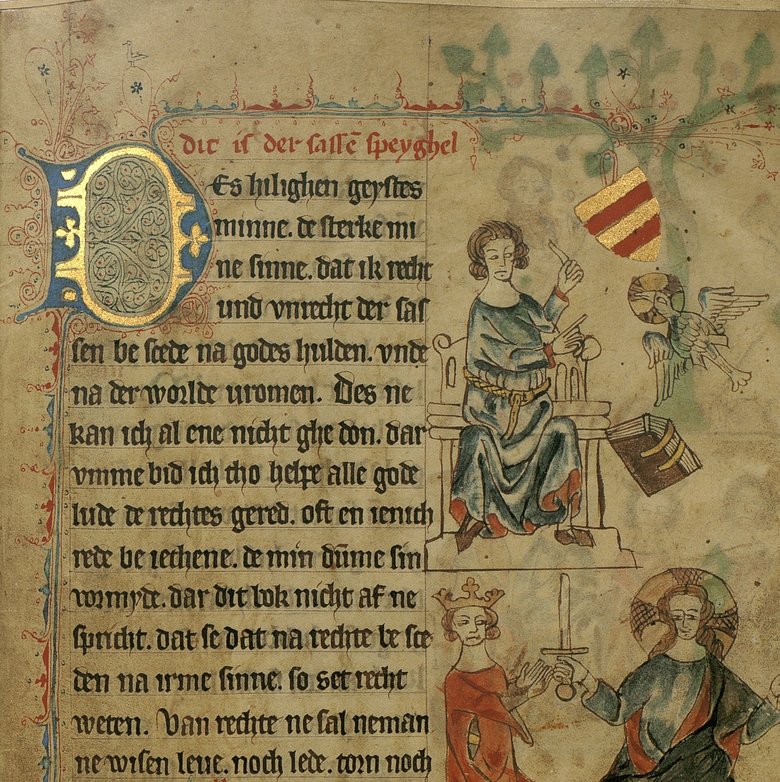 dit is der sassē speyghel
Es hilighen geystes
minne. de sterke mi
ne sinne. dat ik recht
und vnrecht der sas
sen be scede na godes hulden. vnde
na der worlde uromen. Des ne
kan ich al ene nicht ghe don. dar
vmme bid ich tho helpe alle gode
lude de rechtes gered. oft en ienich
rede be iechene. de min dūme sin
vormyde. dar dit bok nicht af ne
spricht. dat se dat na rechte be sce
den na irme sinne. so set recht
weten. Van rechte ne sal neman
ne wisen leue. noch lede. torn noch